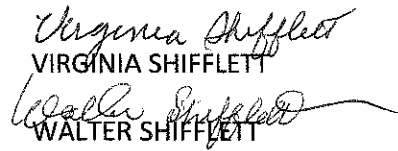 Virginia Shifflett
VIRGINIA SHIFFLETT
Walter Shifflett
WALTER SHIFFLETT